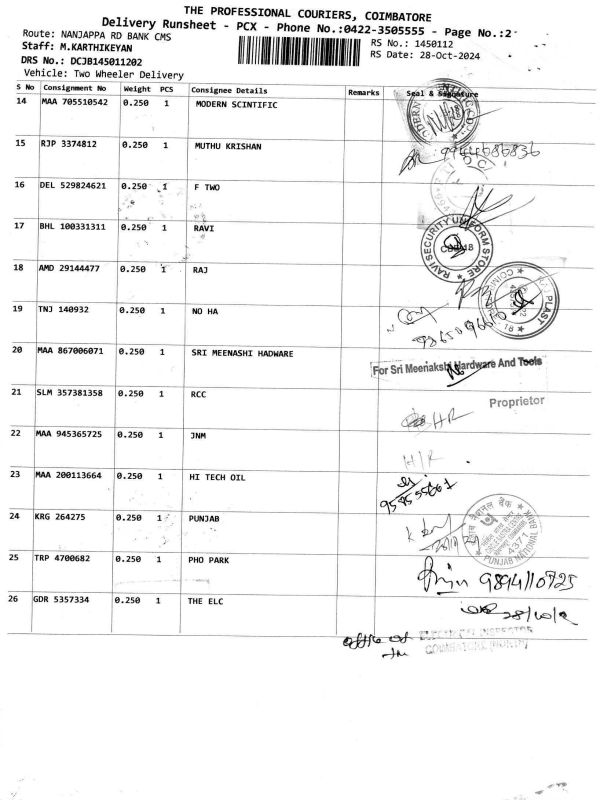 THE PROFESSIONAL COURIERS, COIMBATORE
Delivery Runsheet - PCX - Phone No.:0422-3505555 - Page No.:2
Route: NANJAPPA RD BANK CMS
RS No.: 1450112
Staff: M.KARTHIKEYAN
RS Date: 28-Oct-2024
DRS No.: DCJB145011202
Vehicle: Two Wheeler Delivery
S No Consignment No Weight PCS Consignee Details Remarks Seal & Signature
14 MAA 705510542 0.250 1 MODERN SCINTIFIC
15 RJP 3374812 0.250 1 MUTHU KRISHAN
16 DEL 529824621 0.250 1 F TWO
17 BHL 100331311 0.250 1 RAVI
RAVI SECURITY UNIFORM STORE
18 AMD 29144477 0.250 1 RAJ
19 TNJ 140932 0.250 1 NO HA
20 MAA 867006071 0.250 1 SRI MEENASHI HADWARE
For Sri Meenakshi Hardware And Tools
Proprietor
21 SLM 357381358 0.250 1 RCC
22 MAA 945365725 0.250 1 JNM
23 MAA 200113664 0.250 1 HI TECH OIL
24 KRG 264275 0.250 1 PUNJAB
PUNJAB NATIONAL BANK
4371
25 TRP 4700682 0.250 1 PHO PARK
9894110725
26 GDR 5357334 0.250 1 THE ELC
office of ELECTRICAL INSPECTOR
COIMBATORE (NORTH)